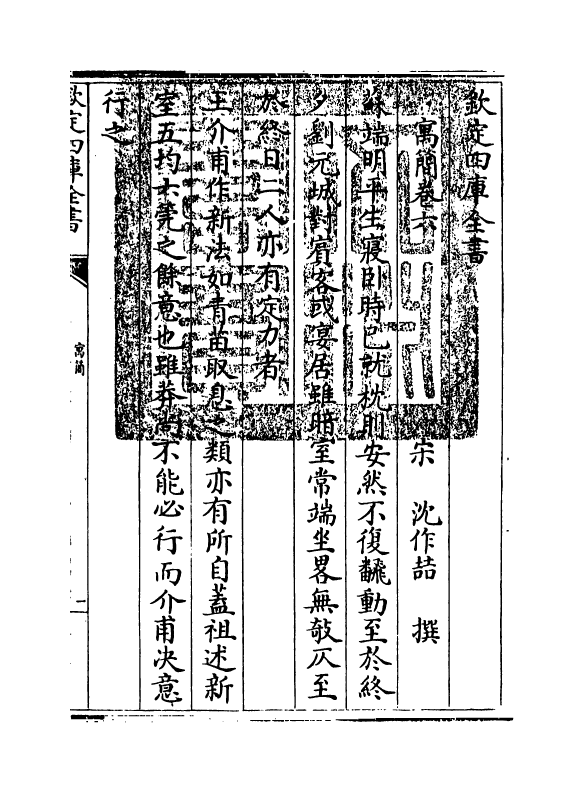 欽定四庫全書
寓簡卷六
宋 沈作喆 撰
蘇端明平生寢卧時已就枕則安然不復飜動至於終
夕劉元城對賓客或宴居雖暗室常端坐畧無攲仄至
於終日二人亦有定力者
王介甫作新法如青苗取息之類亦有所自蓋祖述新
室五均六筦之餘意也雖莽尚不能必行而介甫决意
行之
欽定四庫全書
寓簡
一